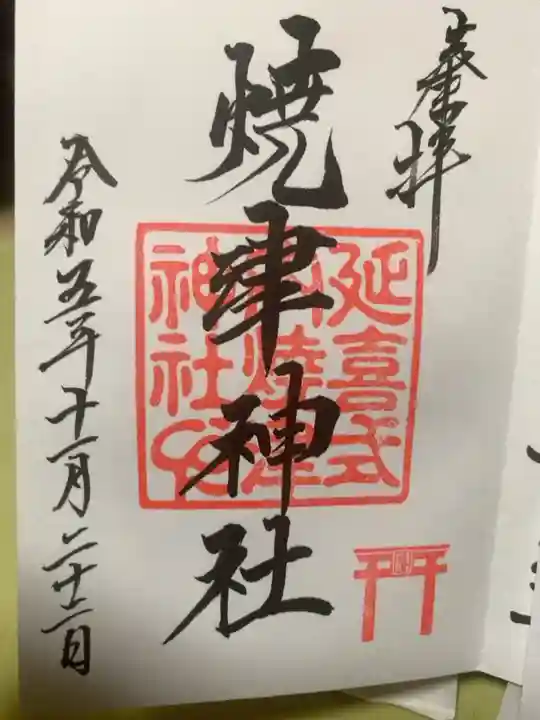 奉拝
焼津神社
令和五年十一月二十二日
延喜式
内焼津
神社